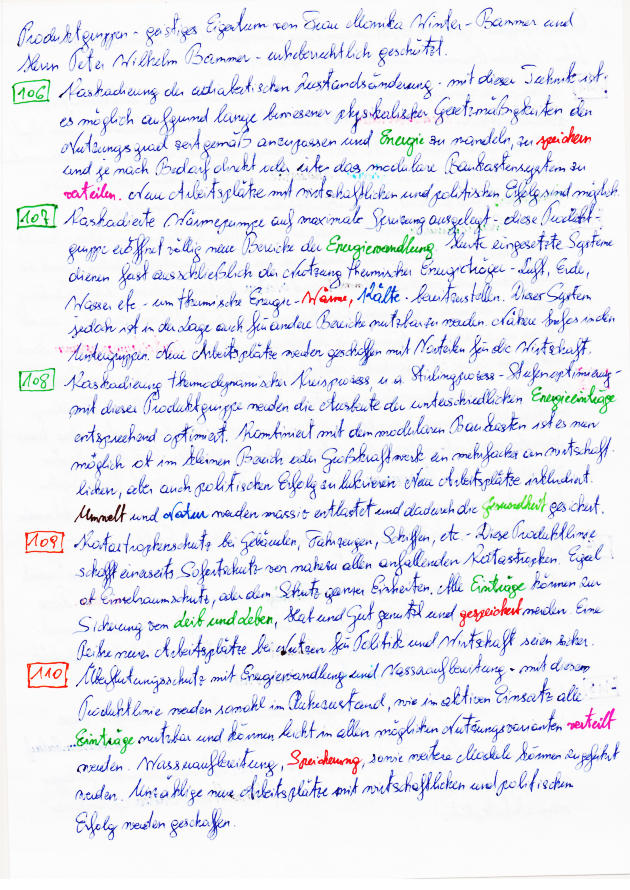 Produktgruppen - geistiges Eigentum von Frau Monika Winter-Bammer und
Herrn Peter Wilhelm Bammer - urheberrechtlich geschützt.
106 Kaskadierung der adiabatischen Zustandsänderung - mit dieser Technik ist
es möglich aufgrund lange bewiesener physikalischer Gesetzmäßigkeiten den
Nutzungsgrad zeitgemäß anzupassen und Energie zu wandeln, zu speichern
und je nach Bedarf direkt oder über das modulare Baukastensystem zu
verteilen. Neue Arbeitsplätze mit wirtschaftlichen und politischen Erfolg sind möglich.
107 Kaskadierte Wärmepumpe auf maximale Spreizung ausgelegt - diese Produkt-
gruppe eröffnet völlig neue Bereiche der Energiewandlung. Heute eingesetzte Systeme
dienen fast ausschließlich der Nutzung thermischer Energieträger - Luft, Erde,
Wasser etc - um thermische Energie - Wärme, Kälte - bereitzustellen. Dieses System
jedoch ist in der Lage auch für andere Bereiche nutzbar zu werden. Nähere Infos in den
Untergruppen. Neue Arbeitsplätze werden geschaffen mit Vorteilen für die Wirtschaft.
108 Kaskadierung thermodynamischer Kreisprozess u. a. Stirlingprozess - Stufenoptimierung -
mit dieser Produktgruppe werden die Ausbeute der unterschiedlichen Energieeinträge
entsprechend optimiert. Kombiniert mit dem modularen Baukasten ist es nun
möglich ob im kleinen Bereich oder Großkraftwerk ein mehrfaches an wirtschaft-
lichen, aber auch politischen Erfolg zu lukrieren. Neue Arbeitsplätze inkludiert.
Umwelt und Natur werden massiv entlastet und dadurch die Gesundheit gesichert.
109 Katastrophenschutz bei Gebäuden, Fahrzeugen, Schiffen, etc - Diese Produktlinie
schafft einerseits Sofortschutz vor nahezu allen anfallenden Katastrophen. Egal
ob Einzelraumschutz, oder dem Schutz ganzer Einheiten. Alle Einträge können zur
Sicherung von Leib und Leben, Hab und Gut genutzt und gespeichert werden. Eine
Reihe neuer Arbeitsplätze bei Nutzen für Politik und Wirtschaft seien sicher.
110 Überflutungsschutz mit Energiewandlung und Wasseraufbereitung - mit dieser
Produktlinie werden sowohl im Ruhezustand, wie im aktiven Einsatz alle
Einträge nutzbar und können leicht in allen möglichen Nutzungsvarianten verteilt
werden. Wasseraufbereitung, Speicherung, sowie weitere Module können zugeführt
werden. Unzählige neue Arbeitsplätze mit wirtschaftlichen und politischen
Erfolg werden geschaffen.